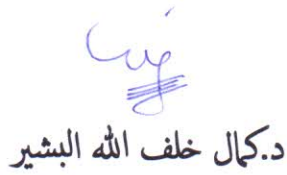 د.كمال خلف الله البشير